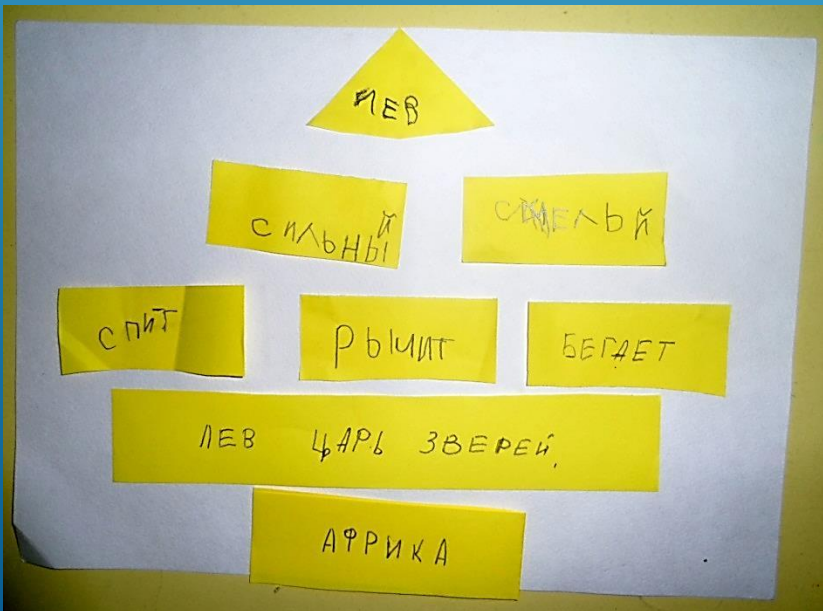 ЛЕВ
СИЛЬНЫЙ СМЕЛЫЙ
СПИТ РЫЧИТ БЕГАЕТ
ЛЕВ ЦАРЬ ЗВЕРЕЙ.
АФРИКА